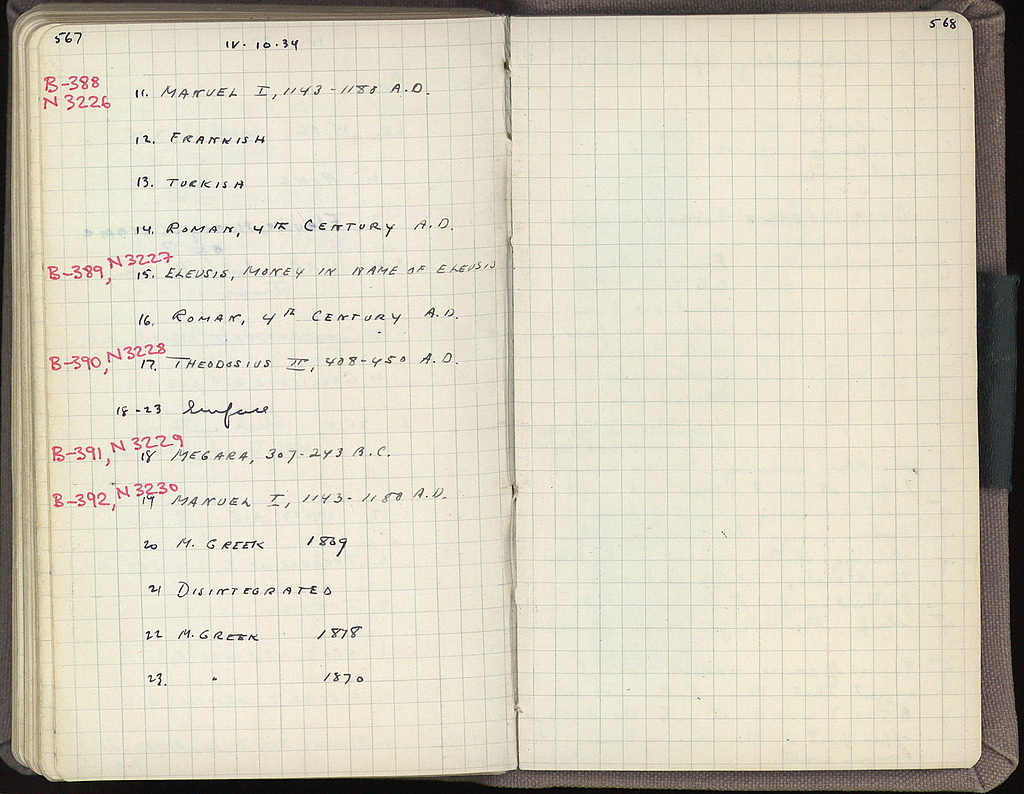 567
IV. 10.34
B-388
N 3226
11. MANUEL I, 1143-1180 A.D.
12. FRANKISH
13. TURKISH
14. ROMAN, 4TH CENTURY A.D.
B-389, N3227
15. ELEUSIS, MONEY IN NAME OF ELEUSIS
16. ROMAN, 4TH CENTURY A.D.
B-390, N3228
17. THEODOSIUS II, 408-450 A.D.
18-23 Surface
B-391, N3229
18 MEGARA, 307-243 B.C.
B-392, N3230
19 MANUEL I, 1143-1180 A.D.
20 M. GREEK 1869
21 DISINTEGRATED
22 M. GREEK 1878
23. " 1870
568